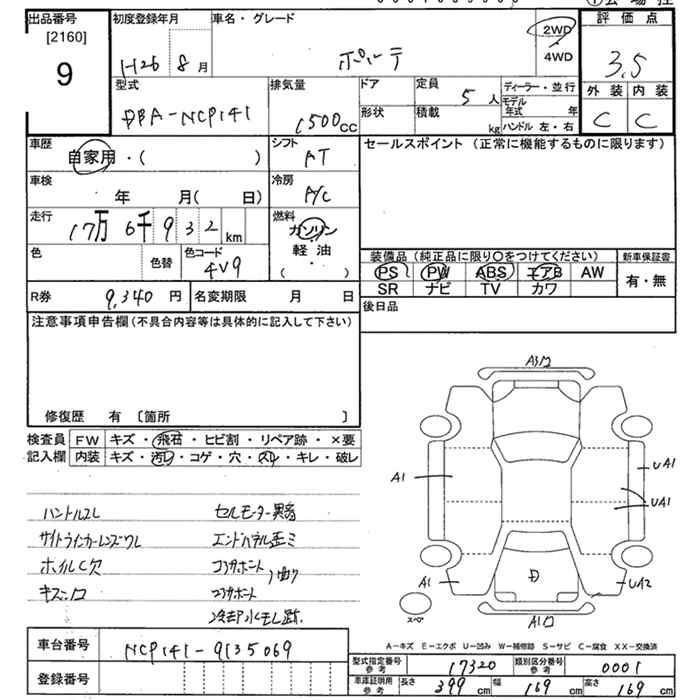 出品番号
[2160]
9
初度登録年月
H26 8月
車名・グレード
ポルテ
2WD
4WD
評価点
3.5
外装 内装
C C
型式
DBA-NCP141
排気量
1500cc
ドア
形状
定員
5人
積載
kg
ディーラー・並行
モデル年式 年
ハンドル 左・右
車歴
自家用・( )
シフト
AT
セールスポイント(正常に機能するものに限ります)
車検
年 月( 日)
冷房
A/C
走行
17万6千932km
燃料
ガソリン
軽油
・
( )
色
色替
色コード
4V9
装備品(純正品に限り○をつけてください)
PS PW ABS エアB AW
SR ナビ TV カワ
新車保証書
有・無
R券 9,340円
名変期限 月 日
後日品
注意事項申告欄(不具合内容等は具体的に記入して下さい)
修復歴 有 [箇所 ]
検査員
記入欄
FW キズ・飛石・ヒビ割・リペア跡・×要
内装 キズ・汚レ・コゲ・穴・スレ・キレ・破レ
ハンドルスレ
セルモーター異音
サイドウインカーレンズワレ
エンドパネル歪ミ
ホイルC欠
コアサポート
曲り
キズ凹
コアサポート
冷却水モレ跡
A1
A1
UA1
UA1
A1
UA2
D
スペア
A-キズ E-エクボ U-凹み W-補修跡 S-サビ C-腐食 XX-交換済
車台番号
NCP141-9135069
登録番号
型式指定番号参考
17320
類別区分番号参考
0001
車庫証明用参考
長さ 399cm
幅 169cm
高さ 169cm